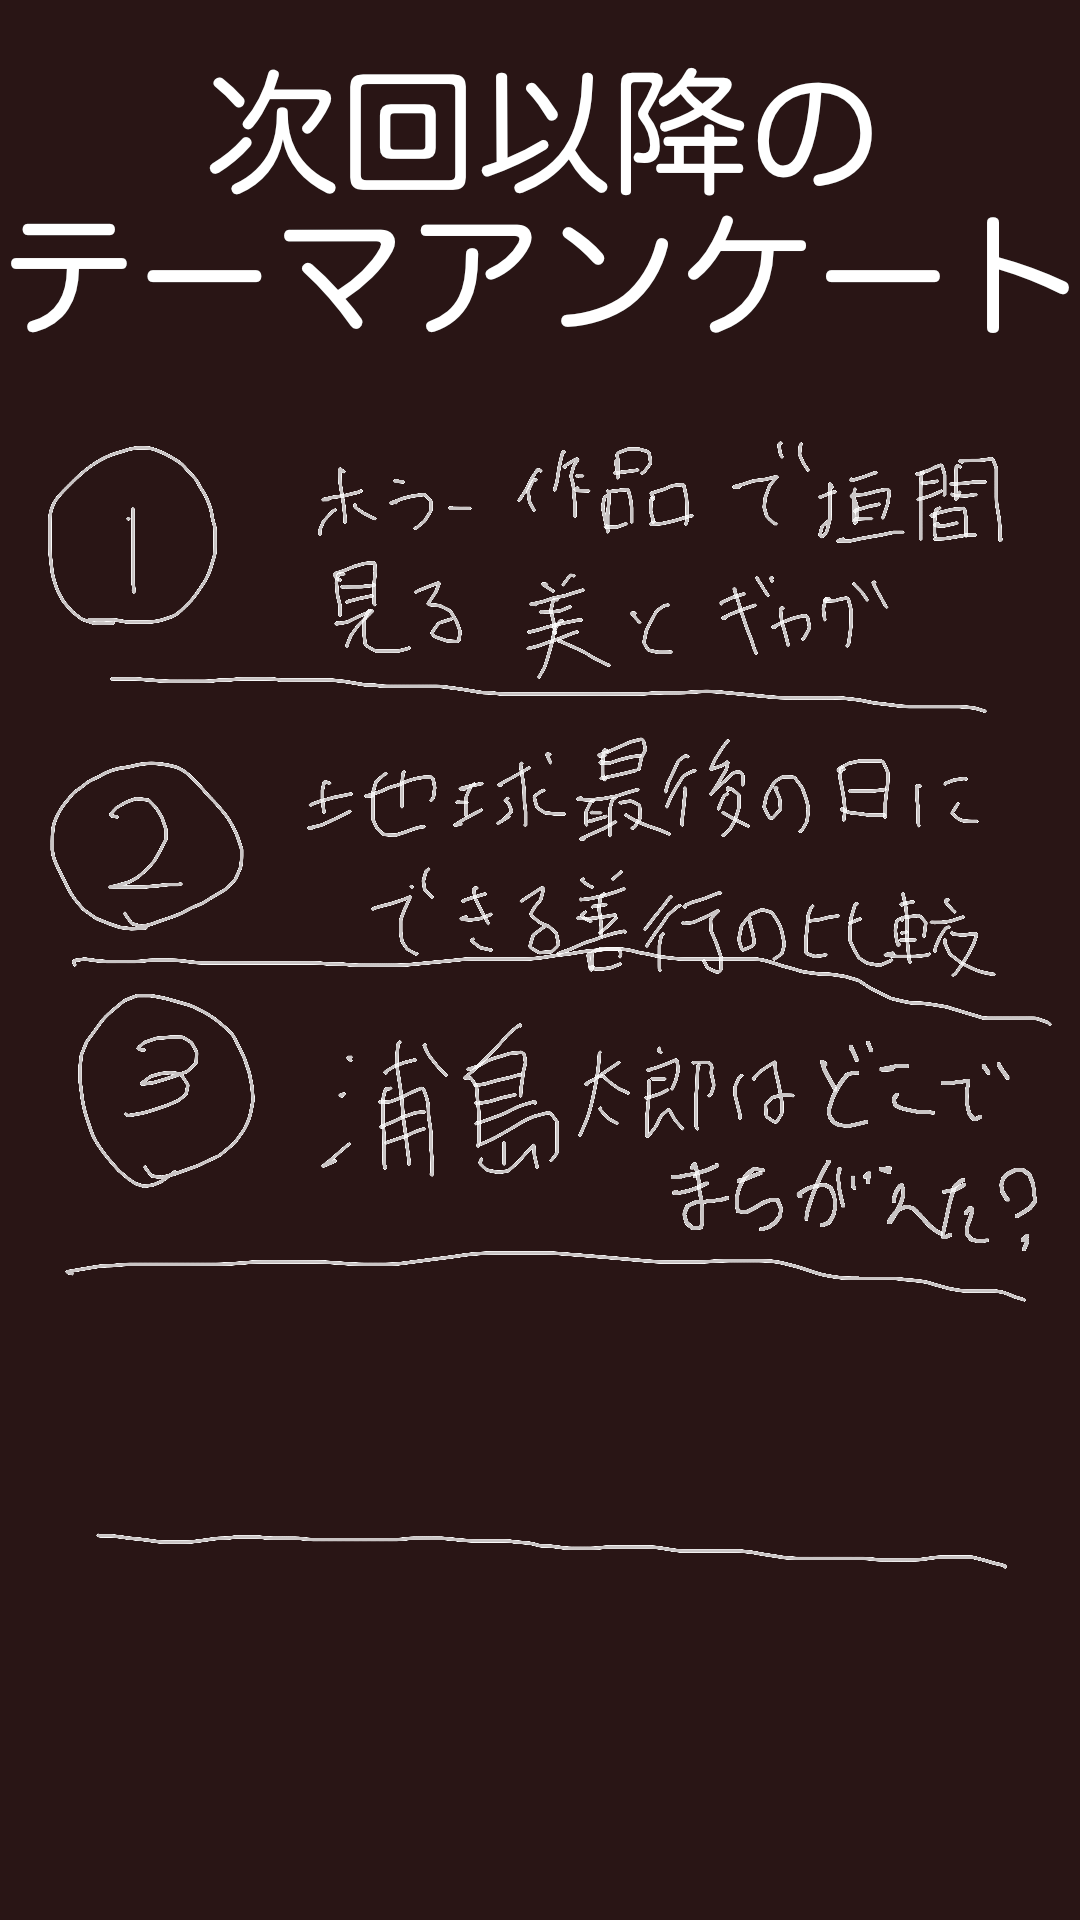 次回以降の
テーマアンケート
① ホラー作品で垣間
見る美とギャグ
② 地球最後の日に
できる善行の比較
③ 浦島太郎はどこで
まちがえた?